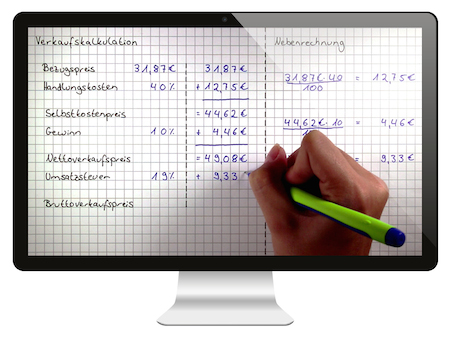 Verkaufskalkulation
Bezugspreis 31,87€ 31,87€
Handlungskosten 40% + 12,75€
Selbstkostenpreis = 44,62€
Gewinn 10% + 4,46€
Nettoverkaufspreis = 49,08€
Umsatzsteuer 19% + 9,33
Bruttoverkaufspreis
Nebenrechnung
31,87€ · 40 = 12,75€
100
44,62€ · 10 = 4,46€
= 9,33€